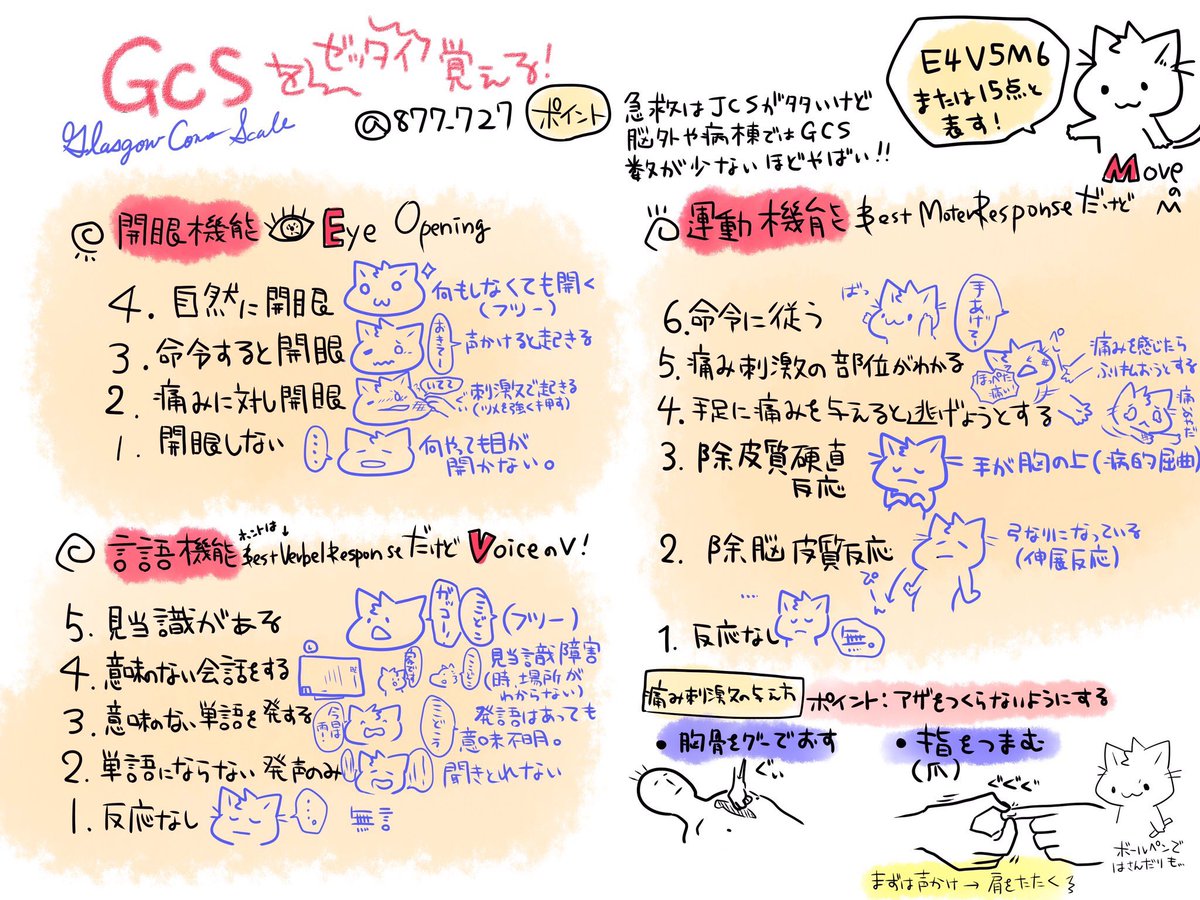 GCSをゼッタイク覚える!
Glasgow Coma Scale
@877_727
ポイント
急救はJCSが多いけど
脳外や病棟ではGCS
数が少ないほどやばい!!
E4V5M6
または15点と
表す!
開眼機能 Eye Opening
4. 自然に開眼
何もしなくても開く
(フツー)
3. 命令すると開眼
おきてー
声かけると起きる
2. 痛みに対し開眼
いてて
刺激で起きる
(ツメを強く押す)
1. 開眼しない
...
何やっても目が
開かない。
言語機能
ホントは↓
Best Verbel Responseだけど VoiceのV!
5. 見当識がある
ガッコー
ここどこ
(フツー)
4. 意味のない会話をする
ここどこ
見当識障害
(時、場所が
わからない)
3. 意味のない単語を発する
今日は雨!
発語はあっても
意味不明。
2. 単語にならない発声のみ
聞きとれない
1. 反応なし
...
無言
運動機能 Best Moter Responseだけど
MoveのM
6. 命令に従う
ばっ
手あげて
5. 痛み刺激の部位がわかる
ほっぺた痛い
痛みを感じたら
ふりはらおうとする
4. 手足に痛みを与えると逃げようとする
痛めやだ
3. 除皮質硬直
反応
手が胸の上(病的屈曲)
2. 除脳皮質反応
弓なりになっている
(伸展反応)
ぴーん
...
1. 反応なし
無。
痛み刺激の与え方
ポイント:アザをつくらないようにする
• 胸骨をグーでおす
ぐぃ
• 指をつまむ
(爪)
ぐぐぐ
ボールペンで
はさんだりも...
まずは声かけ→肩をたたくる